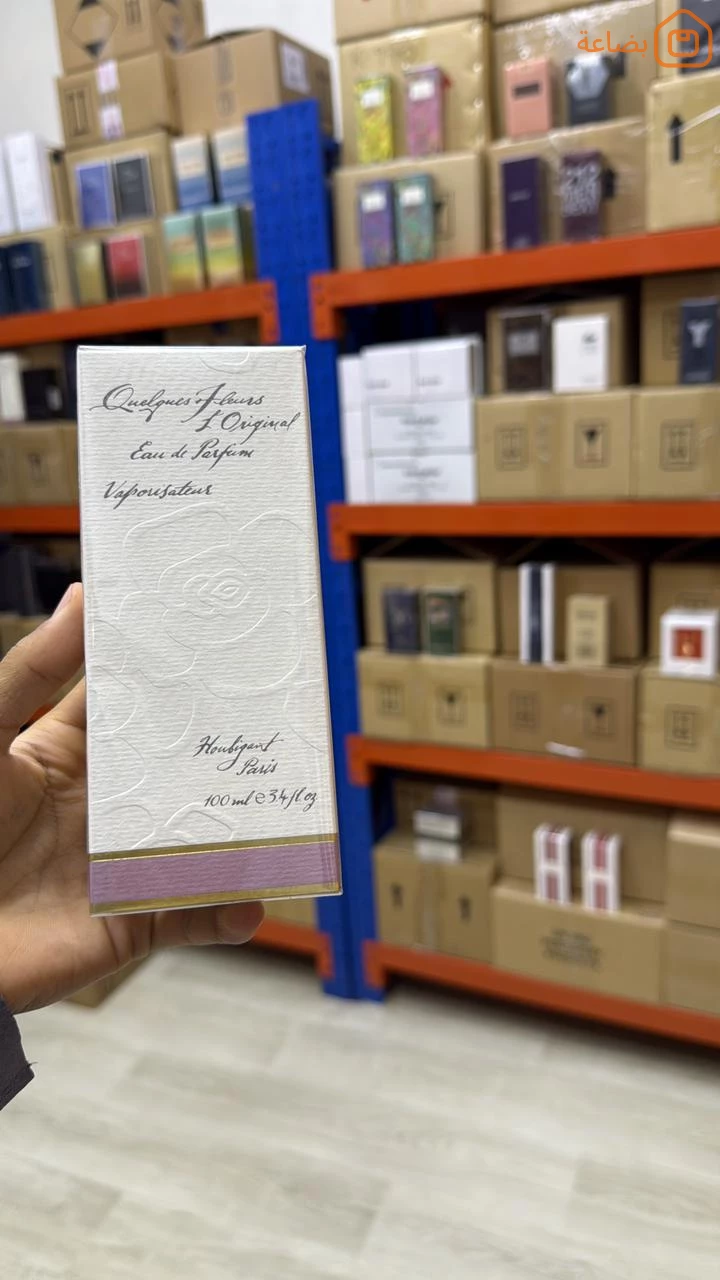 بضاعة
Quelques Fleurs
L'Original
Eau de Parfum
Vaporisateur
Houbigant
Paris
100 ml e 3.4 fl oz